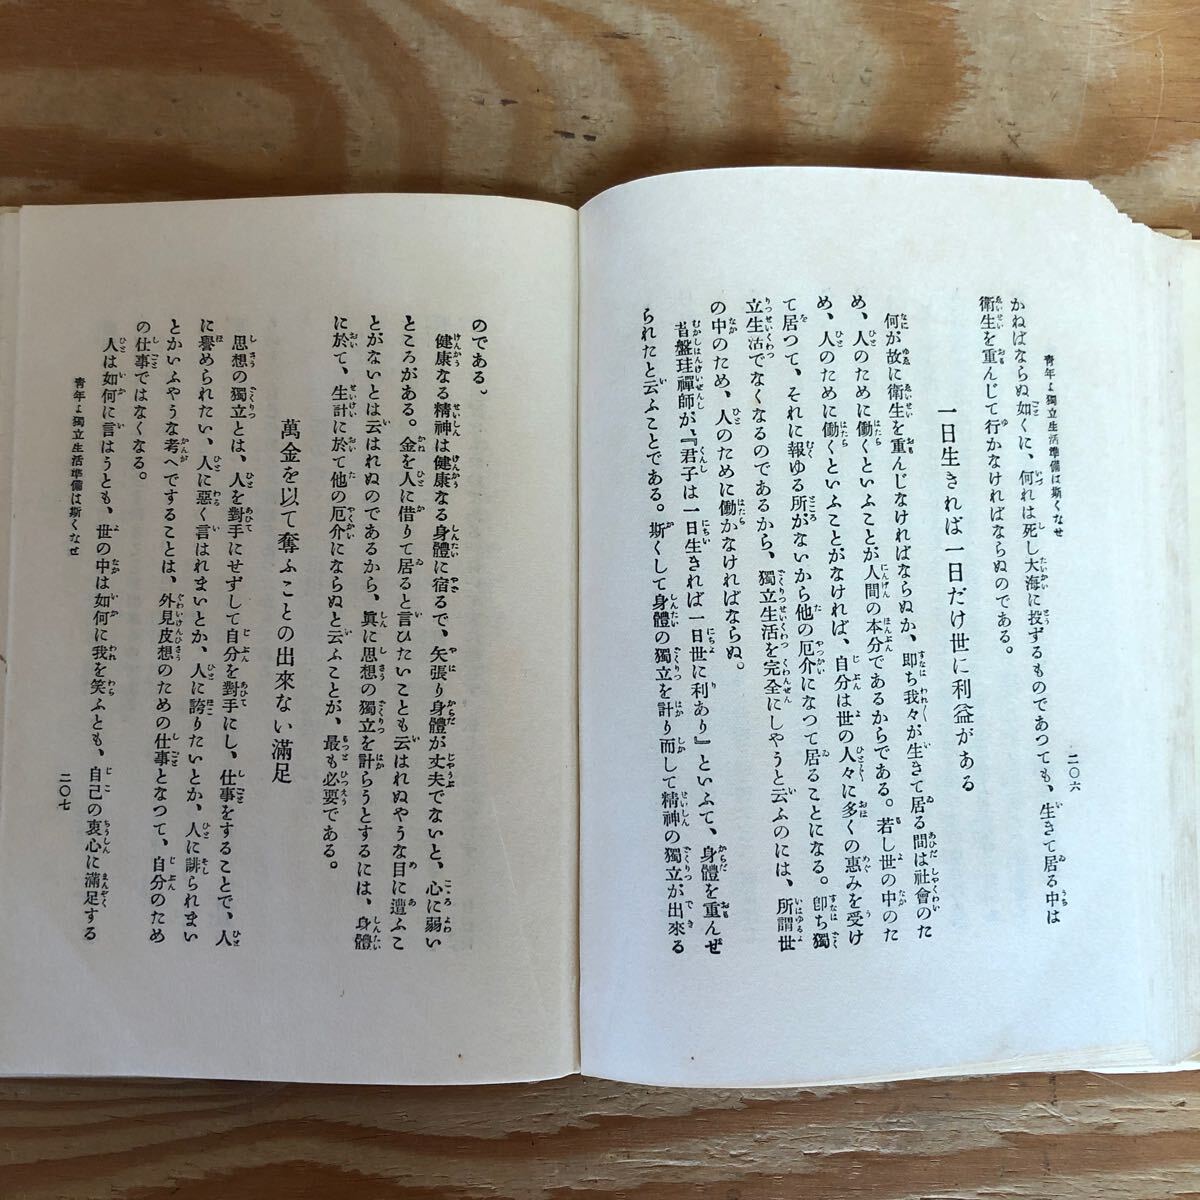 青年よ獨立生活準備は斯くなせ
二〇六
かねばならぬ如くに、何れは死し大海に投ずるものであつても、生きて居る中は
衞生を重んじて行かなければならぬのである。
一日生きれば一日だけ世に利益がある
何が故に衞生を重んじなければならぬか、卽ち我々が生きて居る間は社會のた
め、人のために働くといふことが人間の本分であるからである。若し世の中のた
め、人のために働くといふことがなければ、自分は世の人々に多くの惠みを受け
て居つて、それに報ゆる所がないから他の厄介になつて居ることになる。卽ち獨
立生活でなくなるのであるから、獨立生活を完全にしやうと云ふのには、所謂世
の中のため、人のために働かなければならぬ。
昔盤珪禪師が、『君子は一日生きれば一日世に利あり』といふて、身體を重んぜ
られたと云ふことである。斯くして身體の獨立を計り而して精神の獨立が出來る
のである。
健康なる精神は健康なる身體に宿るで、矢張り身體が丈夫でないと、心に弱い
ところがある。金を人に借りて居ると言ひたいことも云はれぬやうな目に遭ふこ
とがないとは云はれぬのであるから、眞に思想の獨立を計らうとするには、身體
に於て、生計に於て他の厄介にならぬと云ふことが、最も必要である。
萬金を以て奪ふことの出來ない滿足
思想の獨立とは、人を對手にせずして自分を對手にし、仕事をすることで、人
に譽められたい、人に惡く言はれまいとか、人に誇りたいとか、人に誹られまい
とかいふやうな考へですることは、外見皮想のための仕事となつて、自分のため
の仕事ではなくなる。
人は如何に言はうとも、世の中は如何に我を笑ふとも、自己の衷心に滿足する
青年よ獨立生活準備は斯くなせ
二〇七